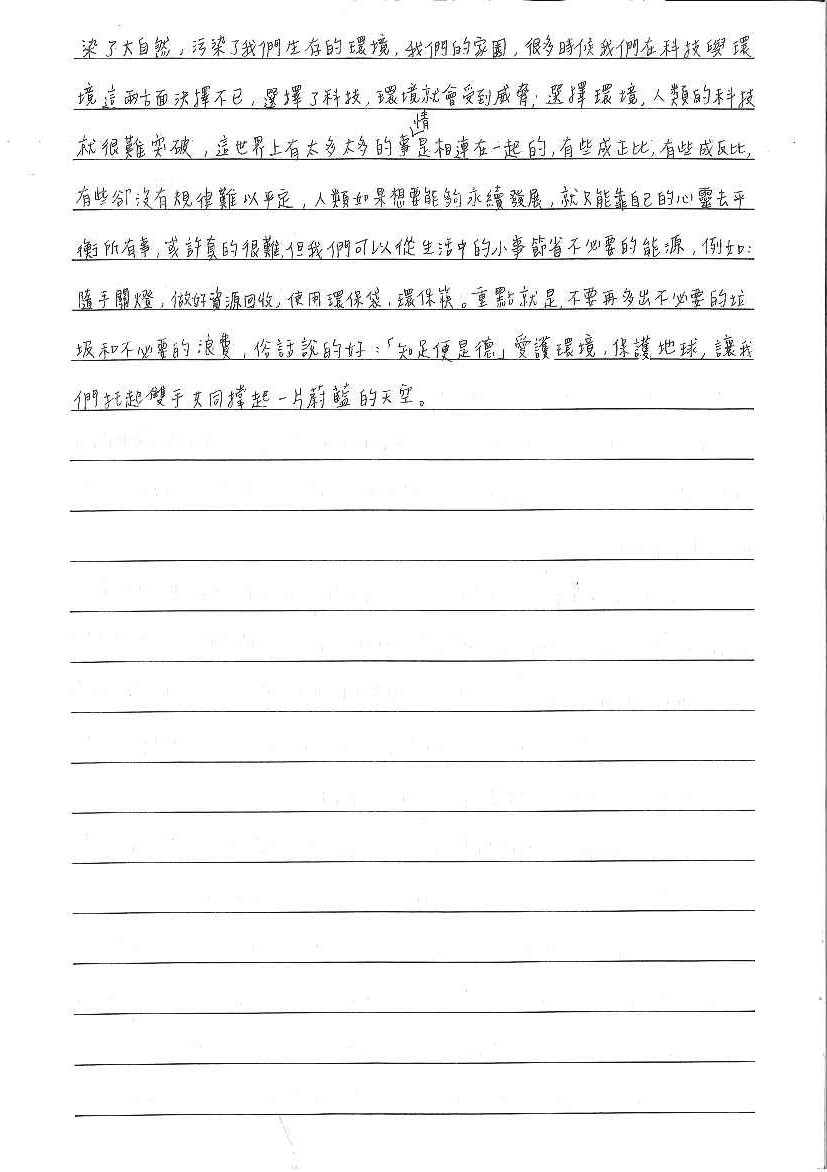 染了大自然，污染了我們生存的環境，我們的家園，很多時候我們在科技與環
境這兩方面決擇不已，選擇了科技，環境就會受到威脅；選擇環境，人類的科技
就很難突破，這世界上有太多太多的事情是相連在一起的，有些成正比，有些成反比，
有些卻沒有規律難以平定，人類如果想要能夠永續發展，就只能靠自己的心靈去平
衡所有事，或許真的很難，但我們可以從生活中的小事節省不必要的能源，例如：
隨手關燈，做好資源回收，使用環保袋，環保筷。重點就是，不要再多出不必要的垃
圾和不必要的浪費，俗話說的好：「知足便是德」愛護環境，保護地球，讓我
們托起雙手共同撐起一片蔚藍的天空。